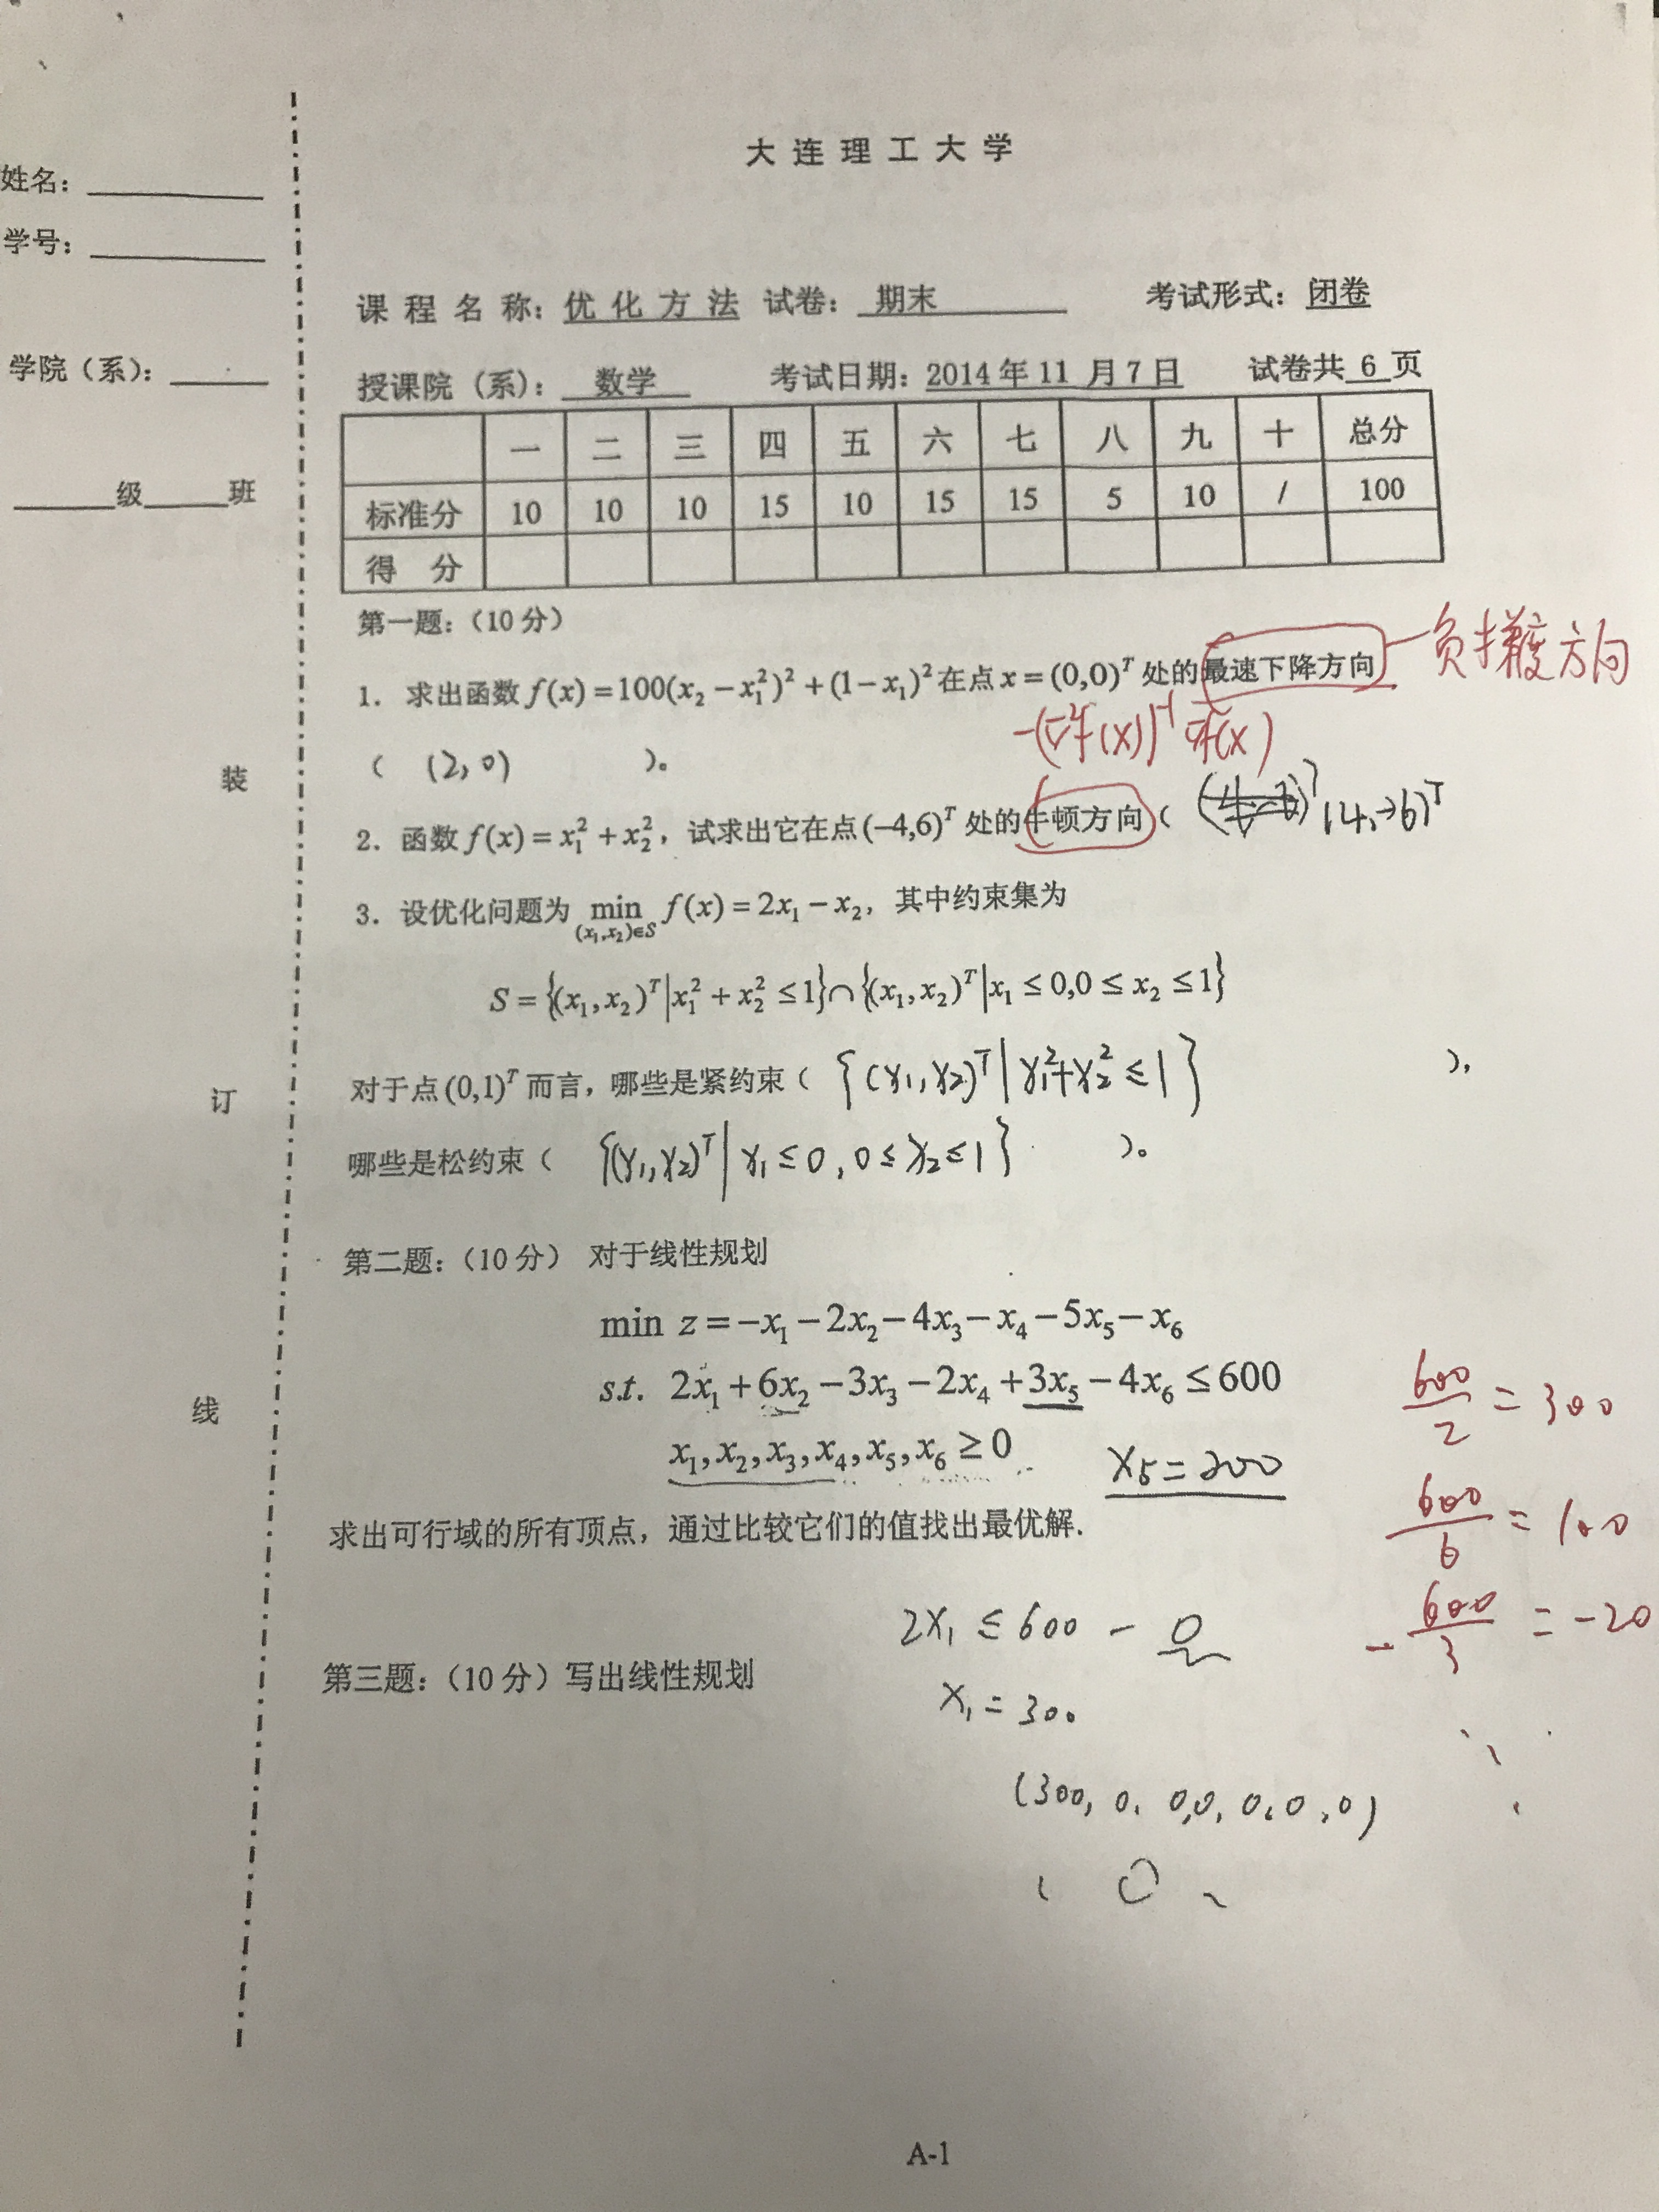 大连理工大学
姓名：
学号：
课程名称：优化方法 试卷：期末 考试形式：闭卷
学院（系）：
授课院（系）：数学 考试日期：2014年11月7日 试卷共6页
一 二 三 四 五 六 七 八 九 十 总分
级 班
标准分 10 10 10 15 10 15 15 5 10 / 100
得 分
第一题：（10分）
1. 求出函数 f(x)=100(x₂−x₁²)²+(1−x₁)² 在点 x=(0,0)ᵀ 处的最速下降方向
负梯度方向
−(∇²f(x))⁻¹ ∇f(x)
（ (2,0) ）。
装
2. 函数 f(x)=x₁²+x₂²，试求出它在点(−4,6)ᵀ 处的牛顿方向（ (4,-6)ᵀ
3. 设优化问题为 min f(x)=2x₁−x₂，其中约束集为
(x₁,x₂)∈S
S={(x₁,x₂)ᵀ|x₁²+x₂²≤1}∩{(x₁,x₂)ᵀ|x₁≤0,0≤x₂≤1}
对于点(0,1)ᵀ 而言，哪些是紧约束（ {(x₁,x₂)ᵀ|x₁²+x₂²≤1} ），
订
哪些是松约束（ {(x₁,x₂)ᵀ|x₁≤0,0≤x₂≤1} ）。
第二题：（10分） 对于线性规划
min z=−x₁−2x₂−4x₃−x₄−5x₅−x₆
s.t. 2x₁+6x₂−3x₃−2x₄+3x₅−4x₆≤600
600/2 = 300
线
x₁,x₂,x₃,x₄,x₅,x₆≥0
x₅=200
求出可行域的所有顶点，通过比较它们的值找出最优解.
600/6 = 100
2x₁≤600−0
−600/3 = −20
第三题：（10分）写出线性规划
x₁=300
(300, 0, 0,0, 0, 0, 0)
A-1